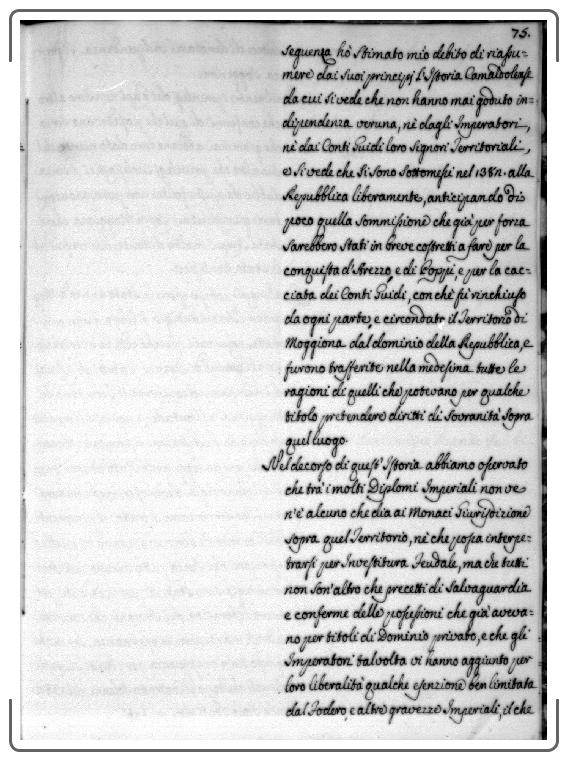 75.
sequenza hò stimato mio debito di riassu=
mere dai suoi principj l'Istoria Camaldolense
da cui si vede che non hanno mai goduto in=
dipendenza veruna, nè dagli Imperatori,
nè dai Conti Guidi loro Signori Territoriali,
e si vede che si sono sottomessi nel alla
Repubblica liberamente, anticipando di
poco quella sommissione che già per forza
sarebbero stati in breve costretti a fare per la
conquista d'Arezzo, e di Poppi, e per la cac=
ciata dei Conti Guidi, con che fù rinchiuso
da ogni parte, e circondato il Territorio di
Moggiona dal dominio della Repubblica, e
furono trasferite nella medesima tutte le
ragioni di quelli che potevano per qualche
titolo pretendere diritti di Sovranità sopra
quel luogo.
Nel decorso di quest'Istoria abbiamo osservato
che tra' i molti Diplomi Imperiali non ve
n'è alcuno che dia ai Monaci Giurisdizione
sopra quel Territorio, nè che possa interpe=
trarsi per Investitura Feudale, ma che tutti
non son'altro che precetti di Salvaguardia
e conferme delle possessioni che già aveva=
no per titoli di Dominio privato, e che gli
Imperatori talvolta vi hanno aggiunto per
loro liberalità qualche esenzione ben limitata
dal Fodero, e altre gravezze Imperiali, il che